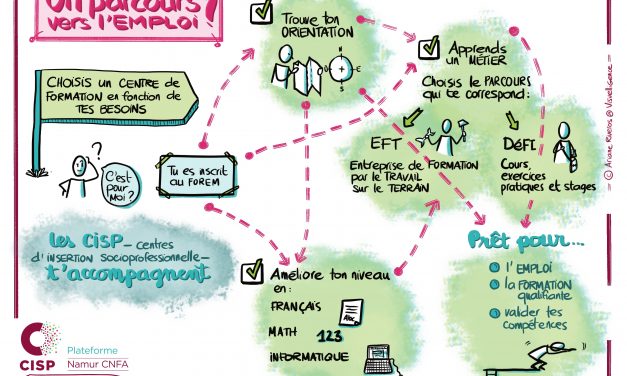 Un parcours
vers l'EMPLOI ?
CHOISIS UN CENTRE DE
FORMATION en fonction de
TES BESOINS
C'est
pour
moi ?
Tu es inscrit
au FOREM
Les CISP - centres
d'INSERTION SOCIOPROFESSIONNELLE -
t'accompagnent
Trouve ton
ORIENTATION
N
E
S
Apprends
un MÉTIER
Choisis le PARCOURS
qui te correspond :
EFT
Entreprise de FORMATION
par le TRAVAIL
sur le TERRAIN
DéFI
Cours,
exercices
pratiques et stages
Améliore ton niveau
en :
FRANÇAIS
MATH 123
INFORMATIQUE
Prêt pour...
l'EMPLOI
la FORMATION
qualifiante
valider tes
compétences
CISP
Plateforme
Namur CNFA